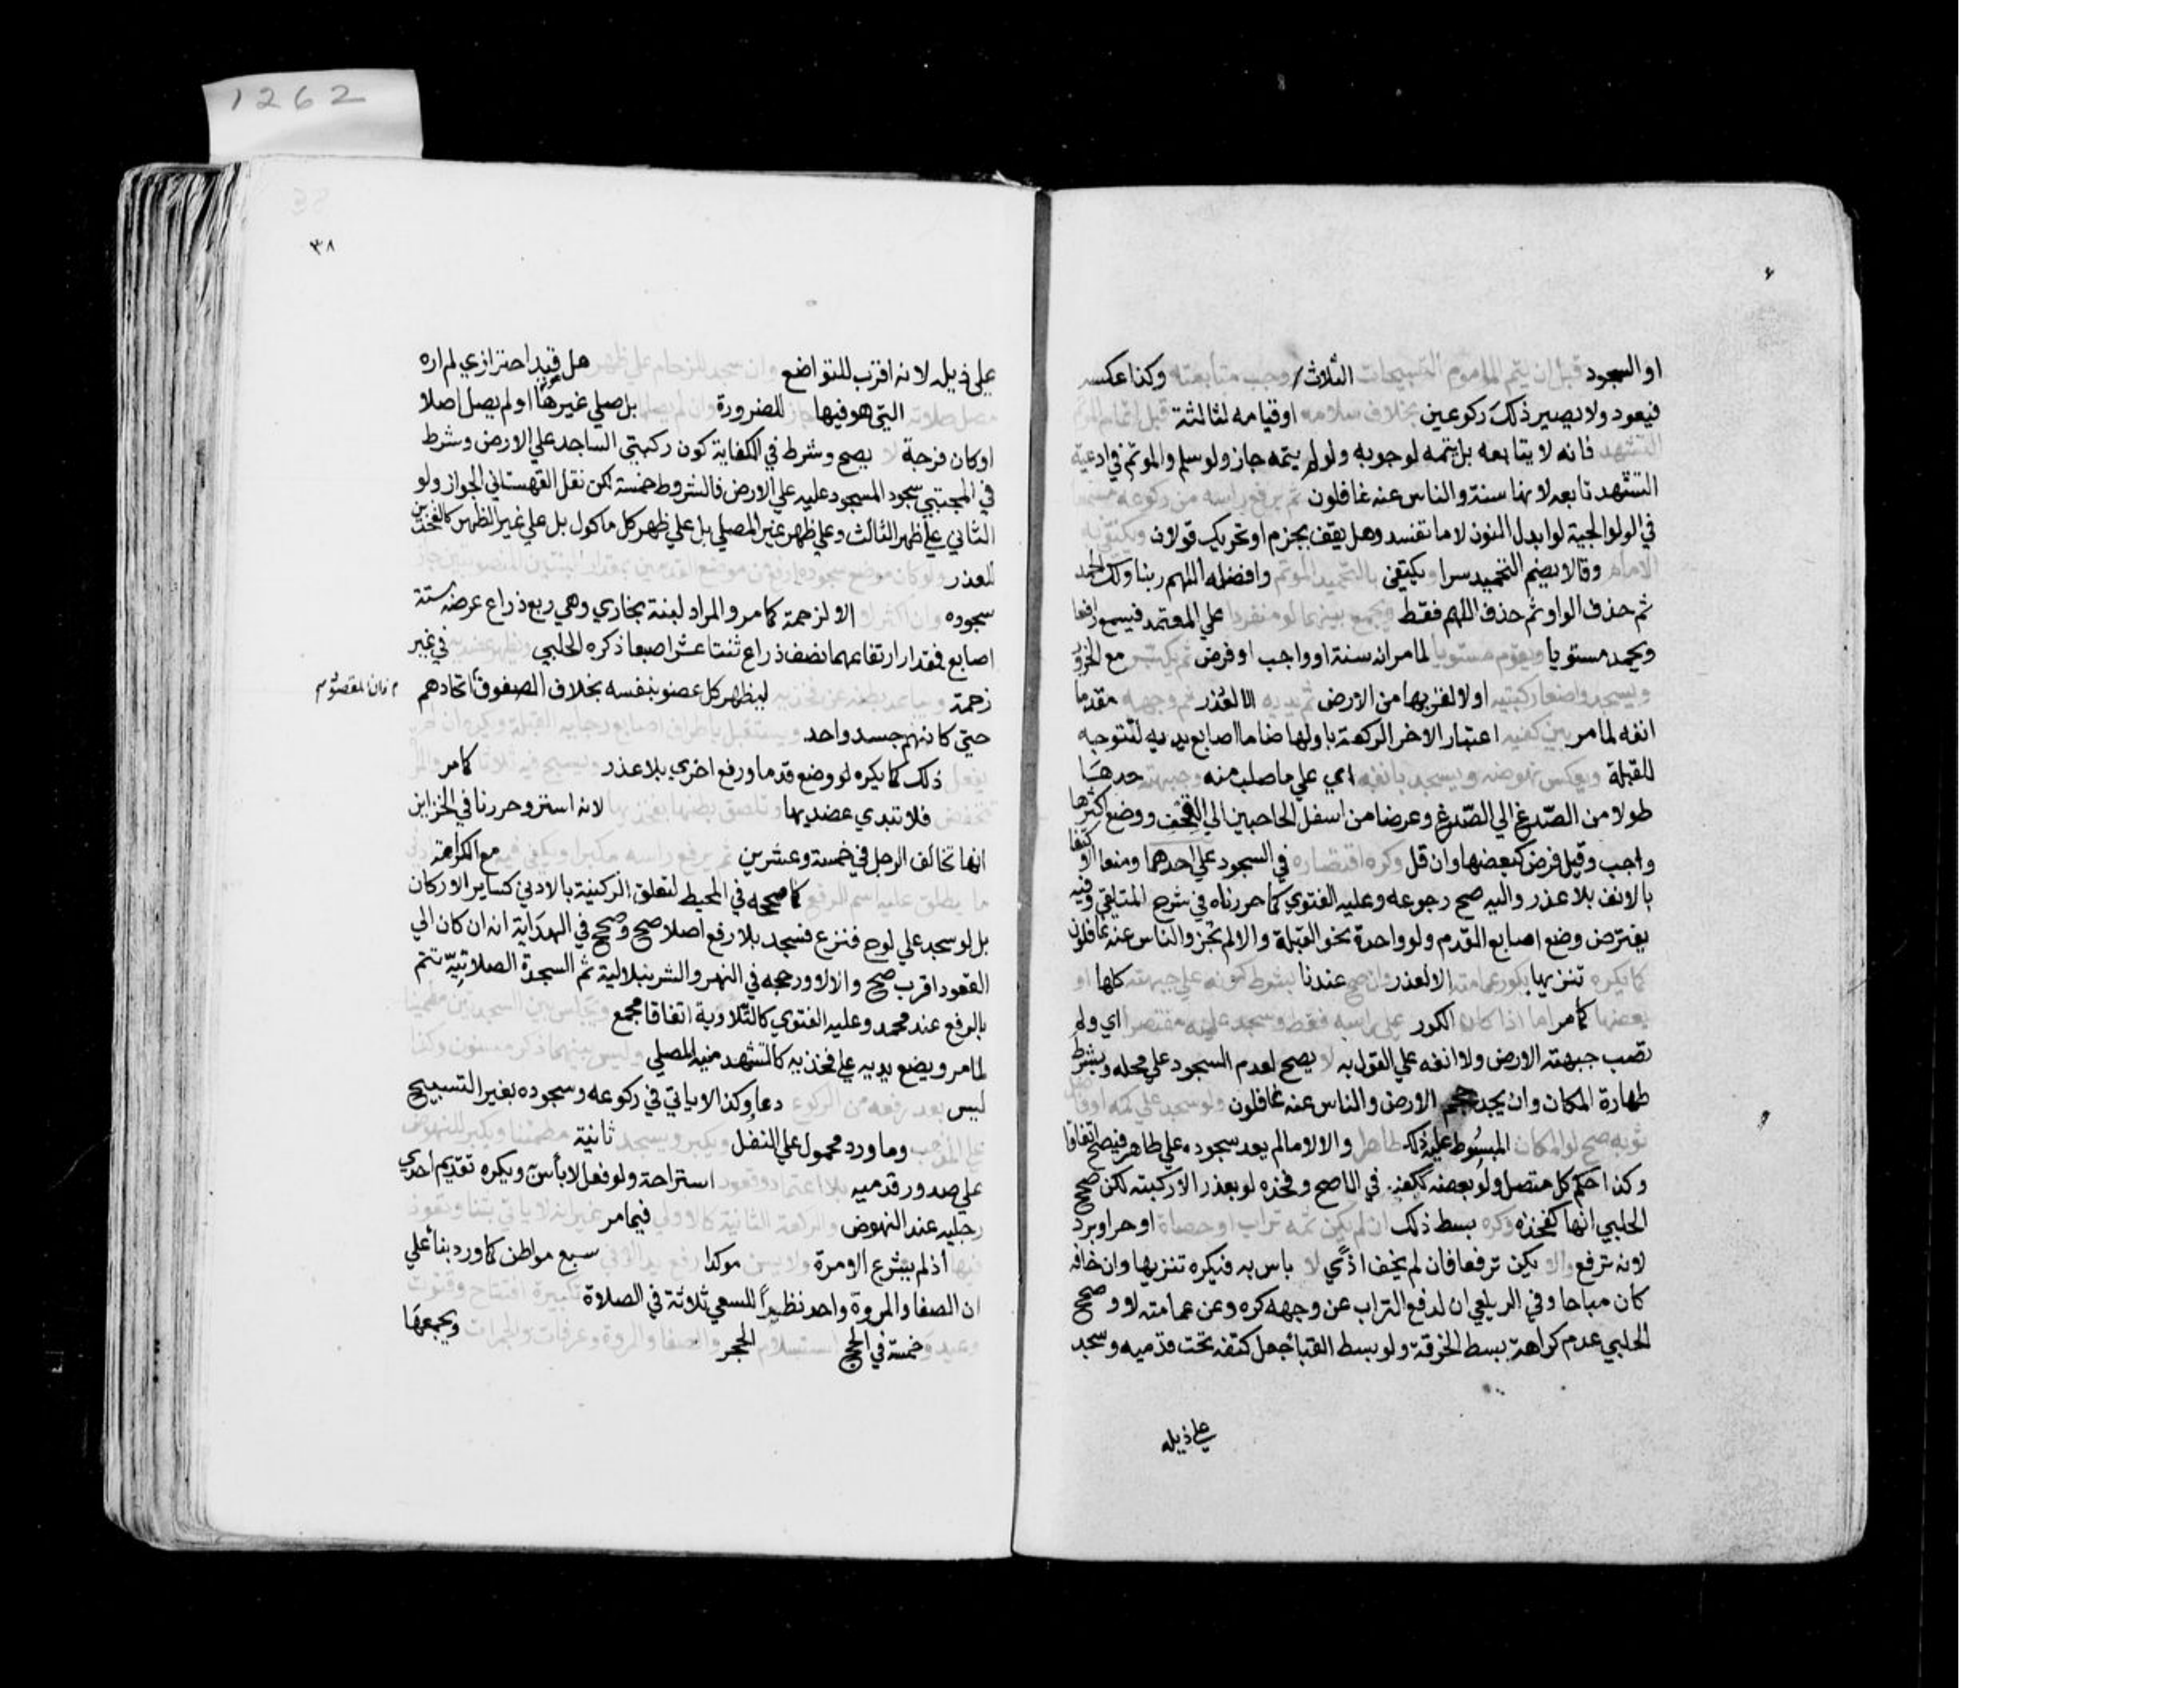 او السجود قبل ان يتم الماموم التسبيحات الثلاث وجب متابعته وكذا عكسه
فيعود ولا يصير ذلك ركوعين بخلاف سلامه او قيامه لثالثة قبل اتمام الموتم
التشهد فانه لا يتابعه بل يتمه لوجوبه ولو لم يتمه جاز ولو سلم والموتم في ادعية
التشهد تابعه لانها سنة والناس عنه غافلون ثم يرفع راسه من ركوعه مسمعا
في الولوالجية لو ابدل النون لاما تفسد وهل يقف بجزم او تحريك قولان ويكتفي به
الامام وقالا يضم التحميد سرا ويكتفي بالتحميد الموتم وافضله اللهم ربنا ولك الحمد
ثم حذف الواو ثم حذف اللهم فقط ويجمع بينهما لو منفردا علي المعتمد فيسمع رافعا
ويحمد مستويا ويقوم مستويا لما مر انه سنة او واجب او فرض ثم يكبر مع الخرور
ويسجد واضعا ركبتيه اولا لقربها من الارض ثم يديه الا لعذر ثم وجهه مقدما
انفه لما مر بين كفيه اعتبار الاخر الركعة باولها ضاما اصابع يديه لتتوجه
للقبلة ويعكس نهوضه ويسجد بانفه اي علي ما صلب منه وجبهته حدها
طولا من الصدغ الي الصدغ وعرضا من اسفل الحاجبين الي القحف ووضع اكثرها
واجب وقيل فرض كبعضها وان قل وكره اقتصاره في السجود علي احدهما ومنعا الاكتفا
بالانف بلا عذر واليه صح رجوعه وعليه الفتوي كما حررناه في شرح الملتقي وفيه
يفترض وضع اصابع القدم ولو واحدة نحو القبلة والا لم تجز والناس عنه غافلون
كما يكره تنزيها بكور عمامته الا لعذر وان صح عندنا بشرط كونه علي جبهته كلها او
بعضها كما مر اما اذا كان الكور علي راسه فقط وسجد عليه مقتصرا اي ولم
تصب جبهته الارض ولا انفه علي القول به لا يصح لعدم السجود علي محله وبشرط
طهارة المكان وان يجد حجم الارض والناس عنه غافلون ولو سجد علي كمه او فاضل
ثوبه صح لو المكان المبسوط عليه ذلك طاهرا والا لا مالم يعد سجوده علي طاهر فيصح اتفاقا
وكذا حكم كل متصل ولو بعضه ككفه في الاصح وفخذه لو بعذر لا ركبته لكن صحح
الحلبي انها كفخذه وكره بسط ذلك ان لم يكن ثمه تراب او حصاة او حر او برد
لانه ترفع والا يكن ترفعا فان لم يخف اذي لا باس به فيكره تنزيها وان خافه
كان مباحا وفي الزيلعي ان لدفع التراب عن وجهه كره وعن عمامته لا وصحح
الحلبي عدم كراهة بسط الخرقة ولو بسط القبا جعل كتفه تحت قدميه وسجد
علي ذيله
٣٨
علي ذيله لانه اقرب للتواضع وان سجد للزحام علي ظهر هل قيد احترازي لم اره
مصل صلاته التي هو فيها جاز للضرورة وان لم يصلها بل صلي غيرها او لم يصل اصلا
او كان فرجة لا يصح وشرط في الكفاية كون ركبتي الساجد علي الارض وشرط
في المجتبي سجود المسجود عليه علي الارض فالشروط خمسة لكن نقل القهستاني الجواز ولو
الثاني علي ظهر الثالث وعلي ظهر غير المصلي بل علي ظهر كل ماكول بل علي غير الظهر كالفخذين
للعذر ولو كان موضع سجوده ارفع من موضع القدمين بمقدار لبنتين المنصوبتين جاز
سجوده وان اكثر لا الا لزحمة كما مر والمراد لبنة بخاري وهي ربع ذراع عرض ستة
اصابع فمقدار ارتفاعهما نصف ذراع ثنتا عشرا صبعا ذكره الحلبي ويظهر عضديه في غير
زحمة ويباعد بطنه عن فخذيه ليظهر كل عضو بنفسه بخلاف الصفوف اتحادهم
فان المقصود
حتي كانهم جسد واحد ويستقبل باطراف اصابع رجليه القبلة وكره ان لم
يفعل ذلك كما يكره لو وضع قدما ورفع اخري بلا عذر ويسبح فيه ثلاثا كما مر والمراة
تنخفض فلا تبدي عضديها وتلصق بطنها بفخذيها لانه استر وحررنا في الخزاين
انها تخالف الرجل في خمسة وعشرين ثم يرفع راسه مكبرا ويكفي فيه مع الكراهة ادني
ما يطلق عليه اسم الرفع كما صححه في المحيط لتعلق الركنية بالادني كساير الاركان
بل لو سجد علي لوح فنزع فسجد بلا رفع اصلا صح وصحح في الهداية انه ان كان الي
القعود اقرب صح والا لا ورجحه في النهر والشرنبلالية ثم السجدة الصلاتية تتم
بالرفع عند محمد وعليه الفتوي كالتلاوية اتفاقا مجمع ويجلس بين السجدتين مطمئنا
لما مر ويضع يديه علي فخذيه كالتشهد منيه المصلي وليس بينهما ذكر مسنون وكذا
ليس بعد رفعه من الركوع دعا وكذا لا ياتي في ركوعه وسجوده بغير التسبيح
علي المذهب وما ورد محمول علي النفل ويكبر ويسجد ثانية مطمئنا ويكبر للنهوض
علي صدور قدميه بلا اعتماد وقعود استراحة ولو فعل لا باس ويكره تقديم احدي
رجليه عند النهوض والركعة الثانية كالاولي فيما مر غير انه لا ياتي بثنا وتعوذ
فيها اذ لم يشرع الا مرة ولا يسن موكدا رفع يديه الا في سبع مواطن كما ورد بنا علي
ان الصفا والمروة واحد نظيرا للسعي ثلاثة في الصلاة تكبيرة افتتاح وقنوت
وعيد وخمسة في الحج استلام الحجر والصفا والمروة وعرفات والجمرات ويجمعها
1262